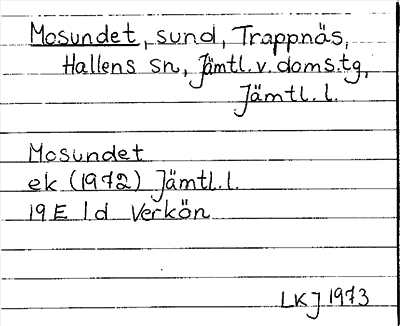 Mosundet, sund, Trappnäs,
Hallens sn, Jämtl.v.doms.tg,
Jämtl.l.
Mosundet
ek (1972) Jämtl.l.
19E 1d Verkön
LKJ 1973